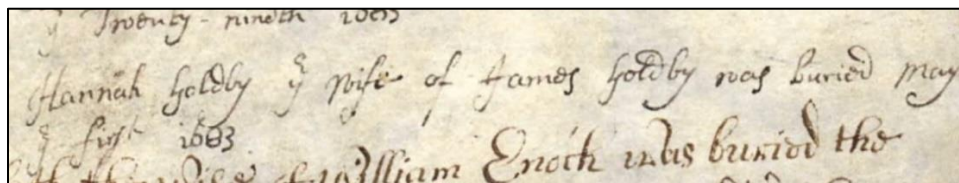 ye Twenty-nineth 1683
Hannah holdby ye wife of James holdby was buried may
ye first 1683
the wife of William Enoch was buried the